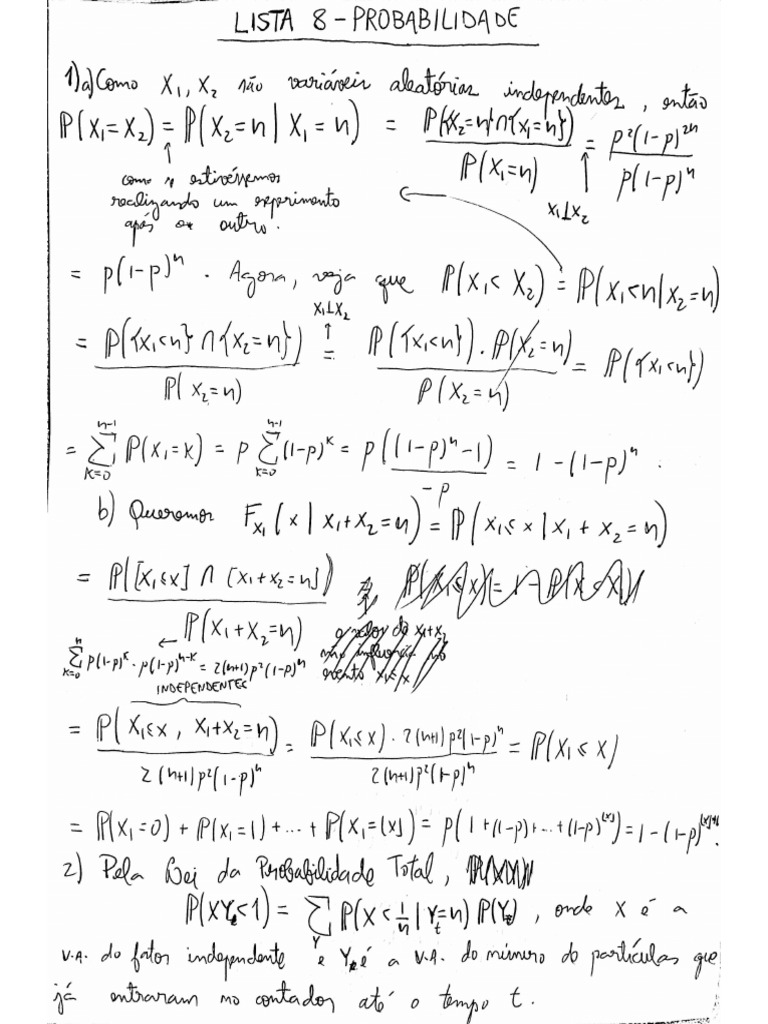 LISTA 8 - PROBABILIDADE
1) a) Como X₁, X₂ são variáveis aleatórias independentes, então
P(X₁=X₂) = P(X₂=n | X₁=n) = P({X₂=n}∩{X₁=n}) / P(X₁=n) = p²(1-p)²ⁿ / p(1-p)ⁿ
↑ como se estivéssemos
realizando um experimento
após o outro.
↑ X₁⊥X₂
= p(1-p)ⁿ. Agora, veja que P(X₁<X₂) = P(X₁<n | X₂=n)
X₁⊥X₂
= P({X₁<n}∩{X₂=n}) / P(X₂=n) = P({X₁<n}).P(X₂=n) / P(X₂=n) = P({X₁<n})
= Σ_{k=0}^{n-1} P(X₁=k) = p Σ_{k=0}^{n-1} (1-p)^k = p((1-p)ⁿ-1) / -p = 1-(1-p)ⁿ.
b) Queremos F_{X₁}(x | X₁+X₂=n) = P(X₁≤x | X₁+X₂=n)
= P([X₁≤x]∩[X₁+X₂=n]) / P(X₁+X₂=n)
← Σ_{k=0}^{n} p(1-p)^k . p(1-p)^{n-k} = 2(n+1)p²(1-p)ⁿ
INDEPENDENTES
= P(X₁≤x, X₁+X₂=n) / 2(n+1)p²(1-p)ⁿ = P(X₁≤x).2(n+1)p²(1-p)ⁿ / 2(n+1)p²(1-p)ⁿ = P(X₁≤x)
= P(X₁=0)+P(X₁=1)+...+P(X₁=⌊x⌋) = p(1+(1-p)+...+(1-p)^{⌊x⌋}) = 1-(1-p)^{⌊x⌋+1}.
2) Pela Lei da Probabilidade Total,
P(XY_t<1) = Σ_Y P(X<1/n | Y_t=n) P(Y_t), onde X é a
V.A. do fator independente e Y_t é a V.A. do número de partículas que
já entraram no contador até o tempo t.